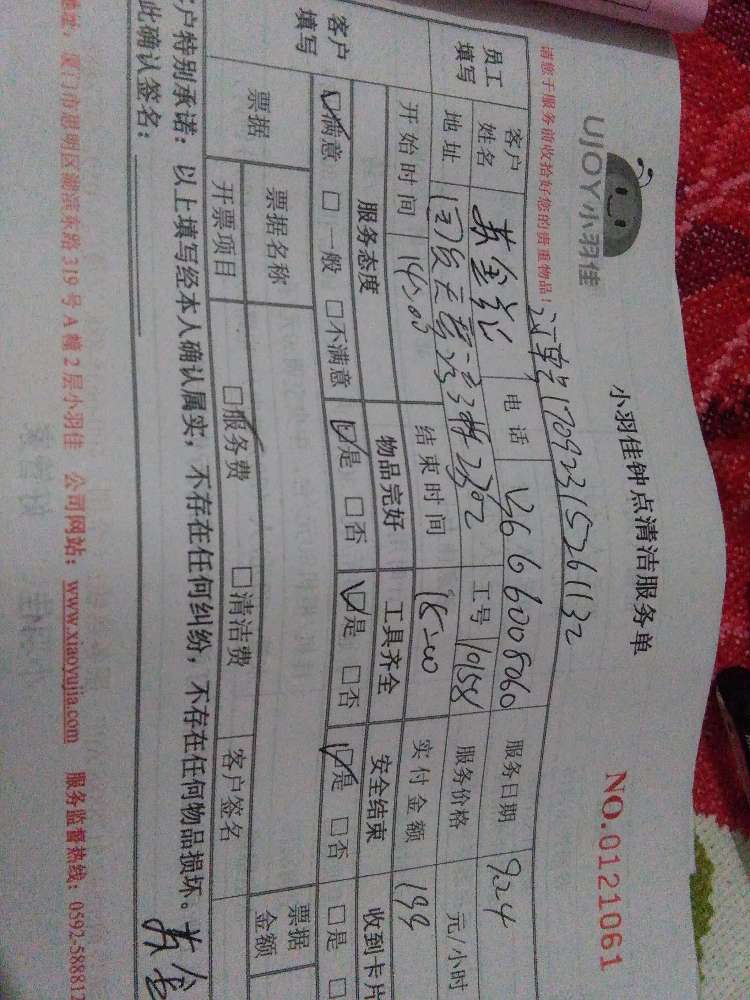 UJOY小羽佳
小羽佳钟点清洁服务单
NO.0121061
请您于服务前收拾好您的贵重物品!
17092315261132
员工填写 客户姓名 电话 13666008060 服务日期 9.24
地址 23栋2302 工号 10158 服务价格 元/小时
开始时间 14:00 结束时间 18:00 实付金额 199
客户填写 服务态度 物品完好 工具齐全 安全结束 收到卡片
☑满意 □一般 □不满意 ☑是 □否 ☑是 □否 ☑是 □否 □是
票据 票据名称 票据金额
开票项目 □服务费 □清洁费 客户签名
客户特别承诺:以上填写经本人确认属实,不存在任何纠纷,不存在任何物品损坏。
此确认签名:
地址:厦门市思明区湖滨东路319号A幢2层小羽佳 公司网站:www.xiaoyujia.com 服务监督热线:0592-588812